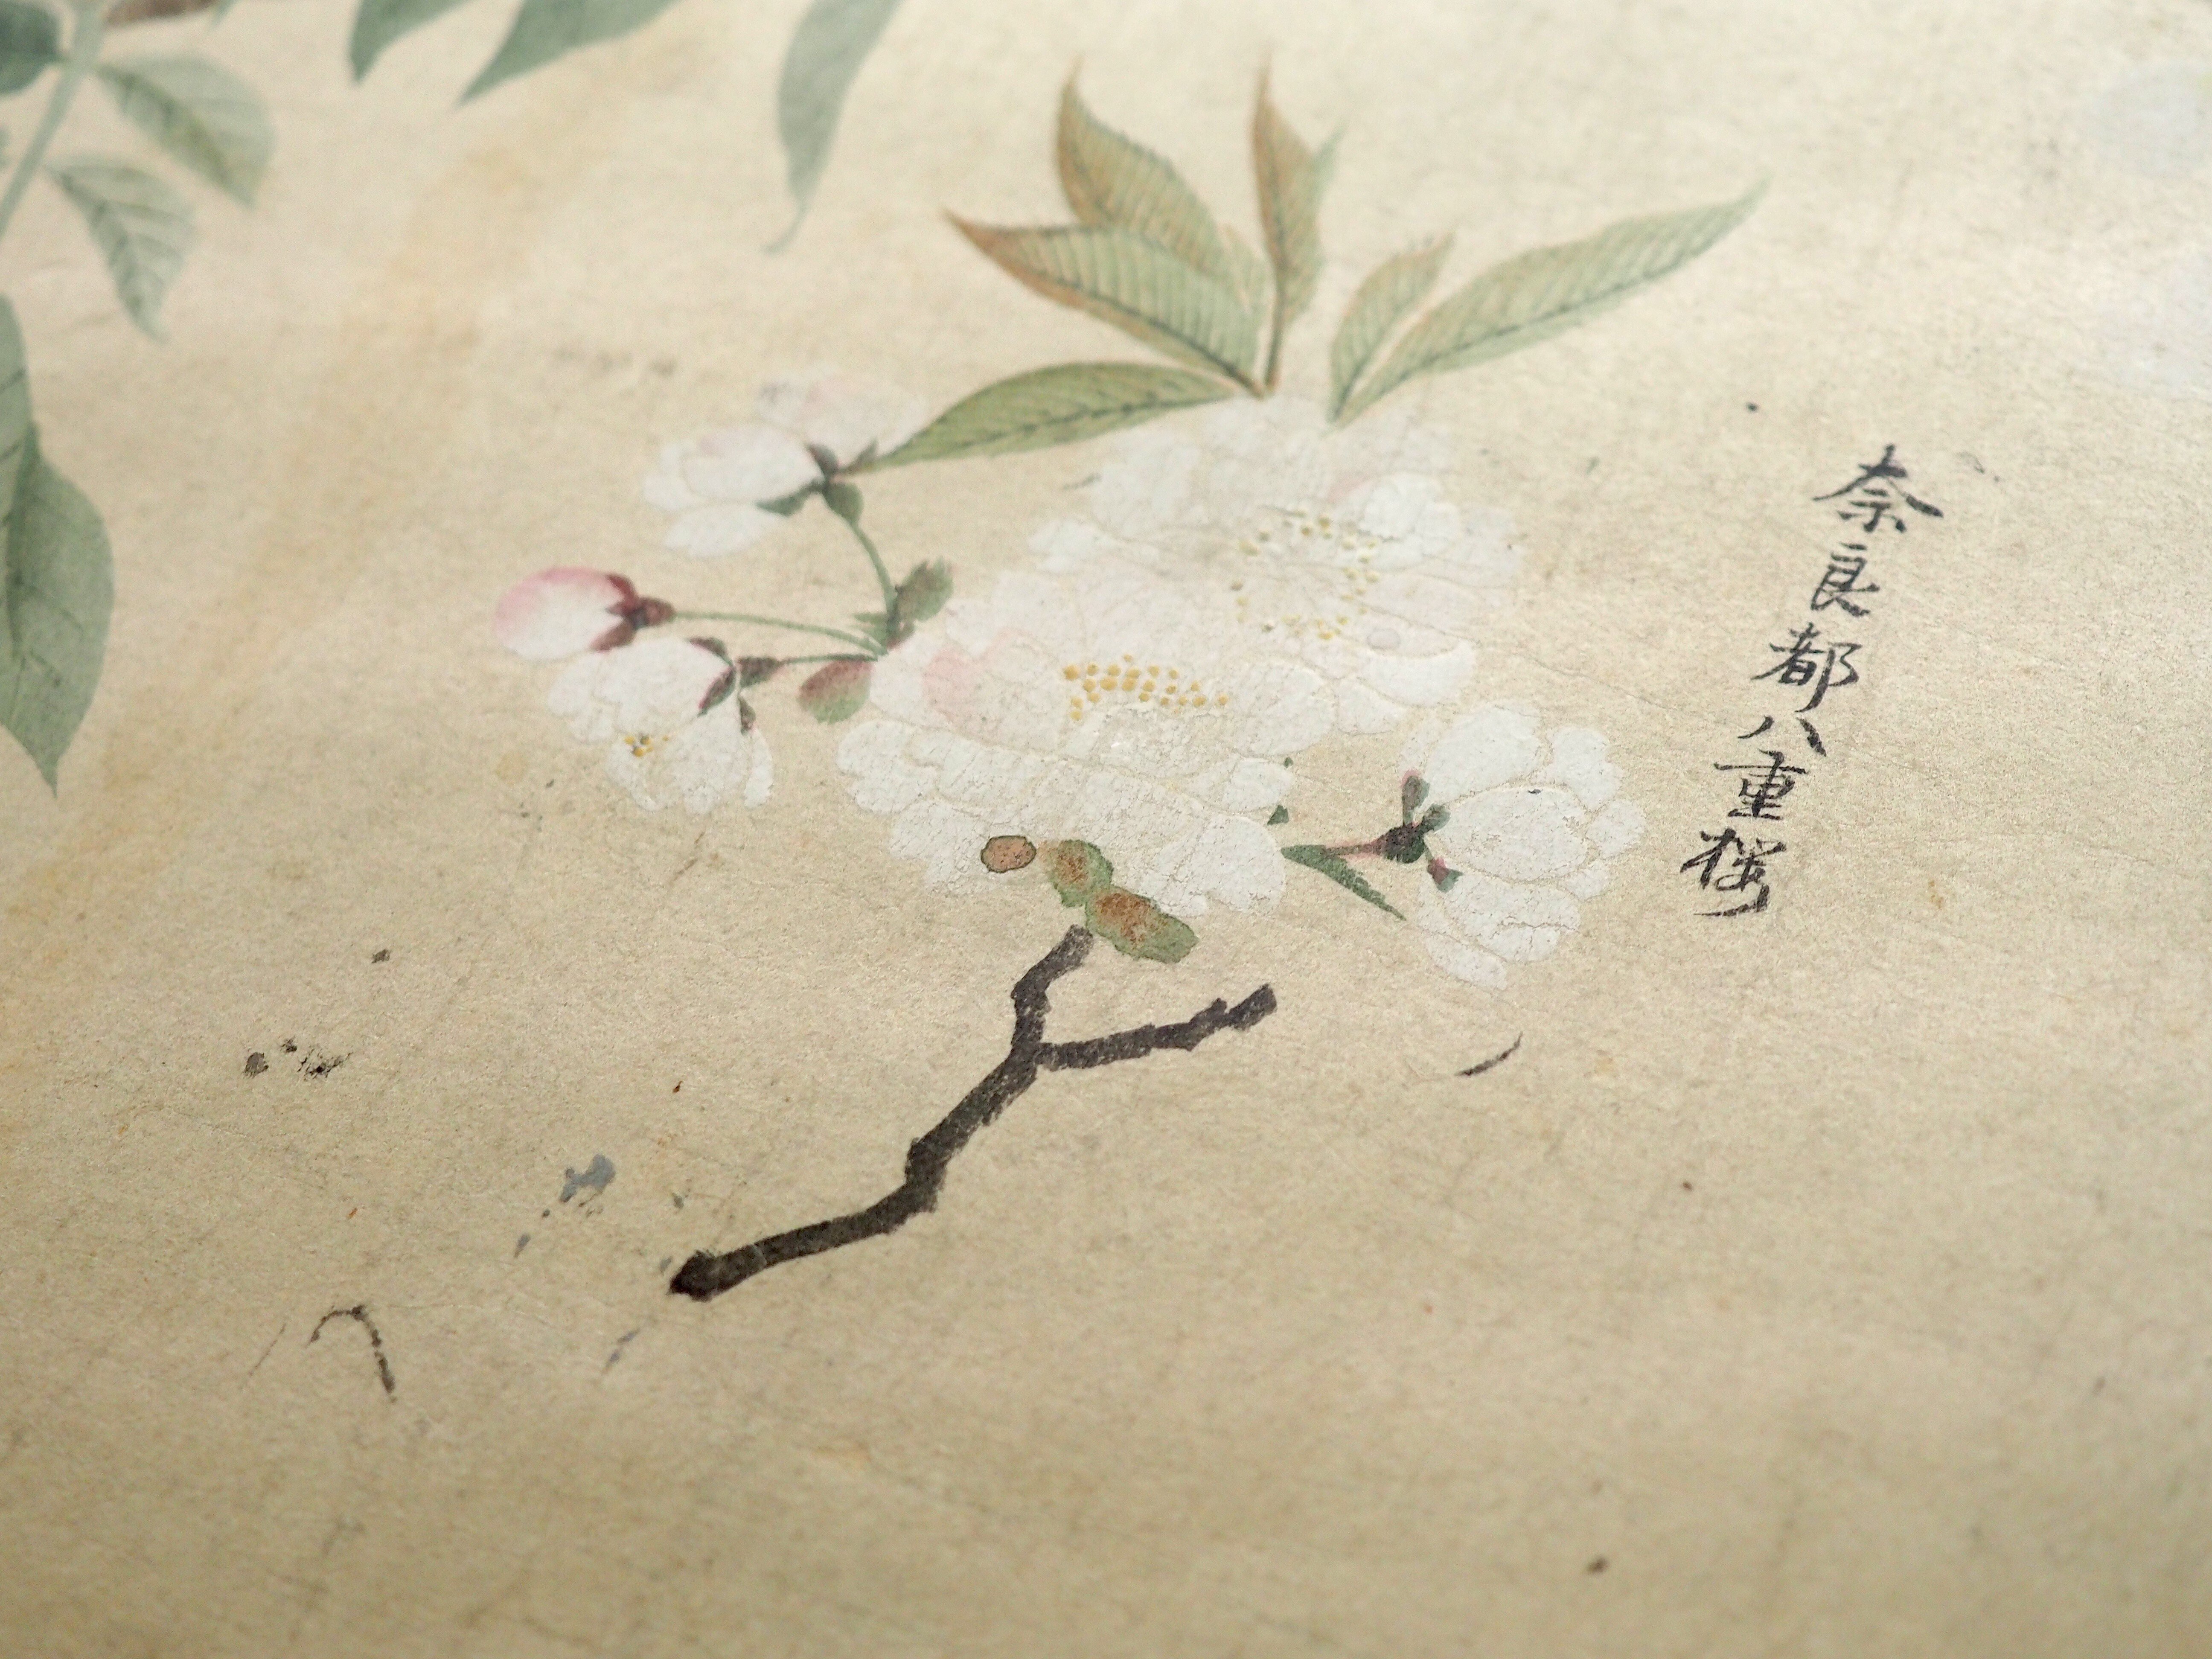 奈良都八重桜